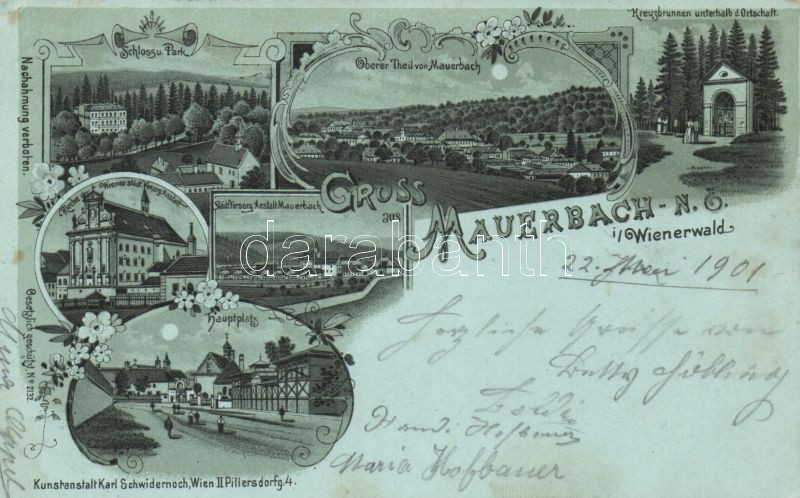 Schloss u. Park.
Oberer Theil von Mauerbach
Kreuzbrunnen unterhalb d. Ortschaft.
Nachahmung verboten.
Kirche und Wiener städt. Versorg. Anstalt
Städt. Versorg. Anstalt Mauerbach
GRUSS
aus
MAUERBACH - N. Ö.
i/Wienerwald
22. 1901
Herzliche Grüsse von
Betty
Poldi
Hofbauer
Maria Hofbauer
Hauptplatz
Gesetzlich geschützt. No 2132
Kunstanstalt Karl Schwidernoch, Wien II Pillersdorfg. 4.
darabanth